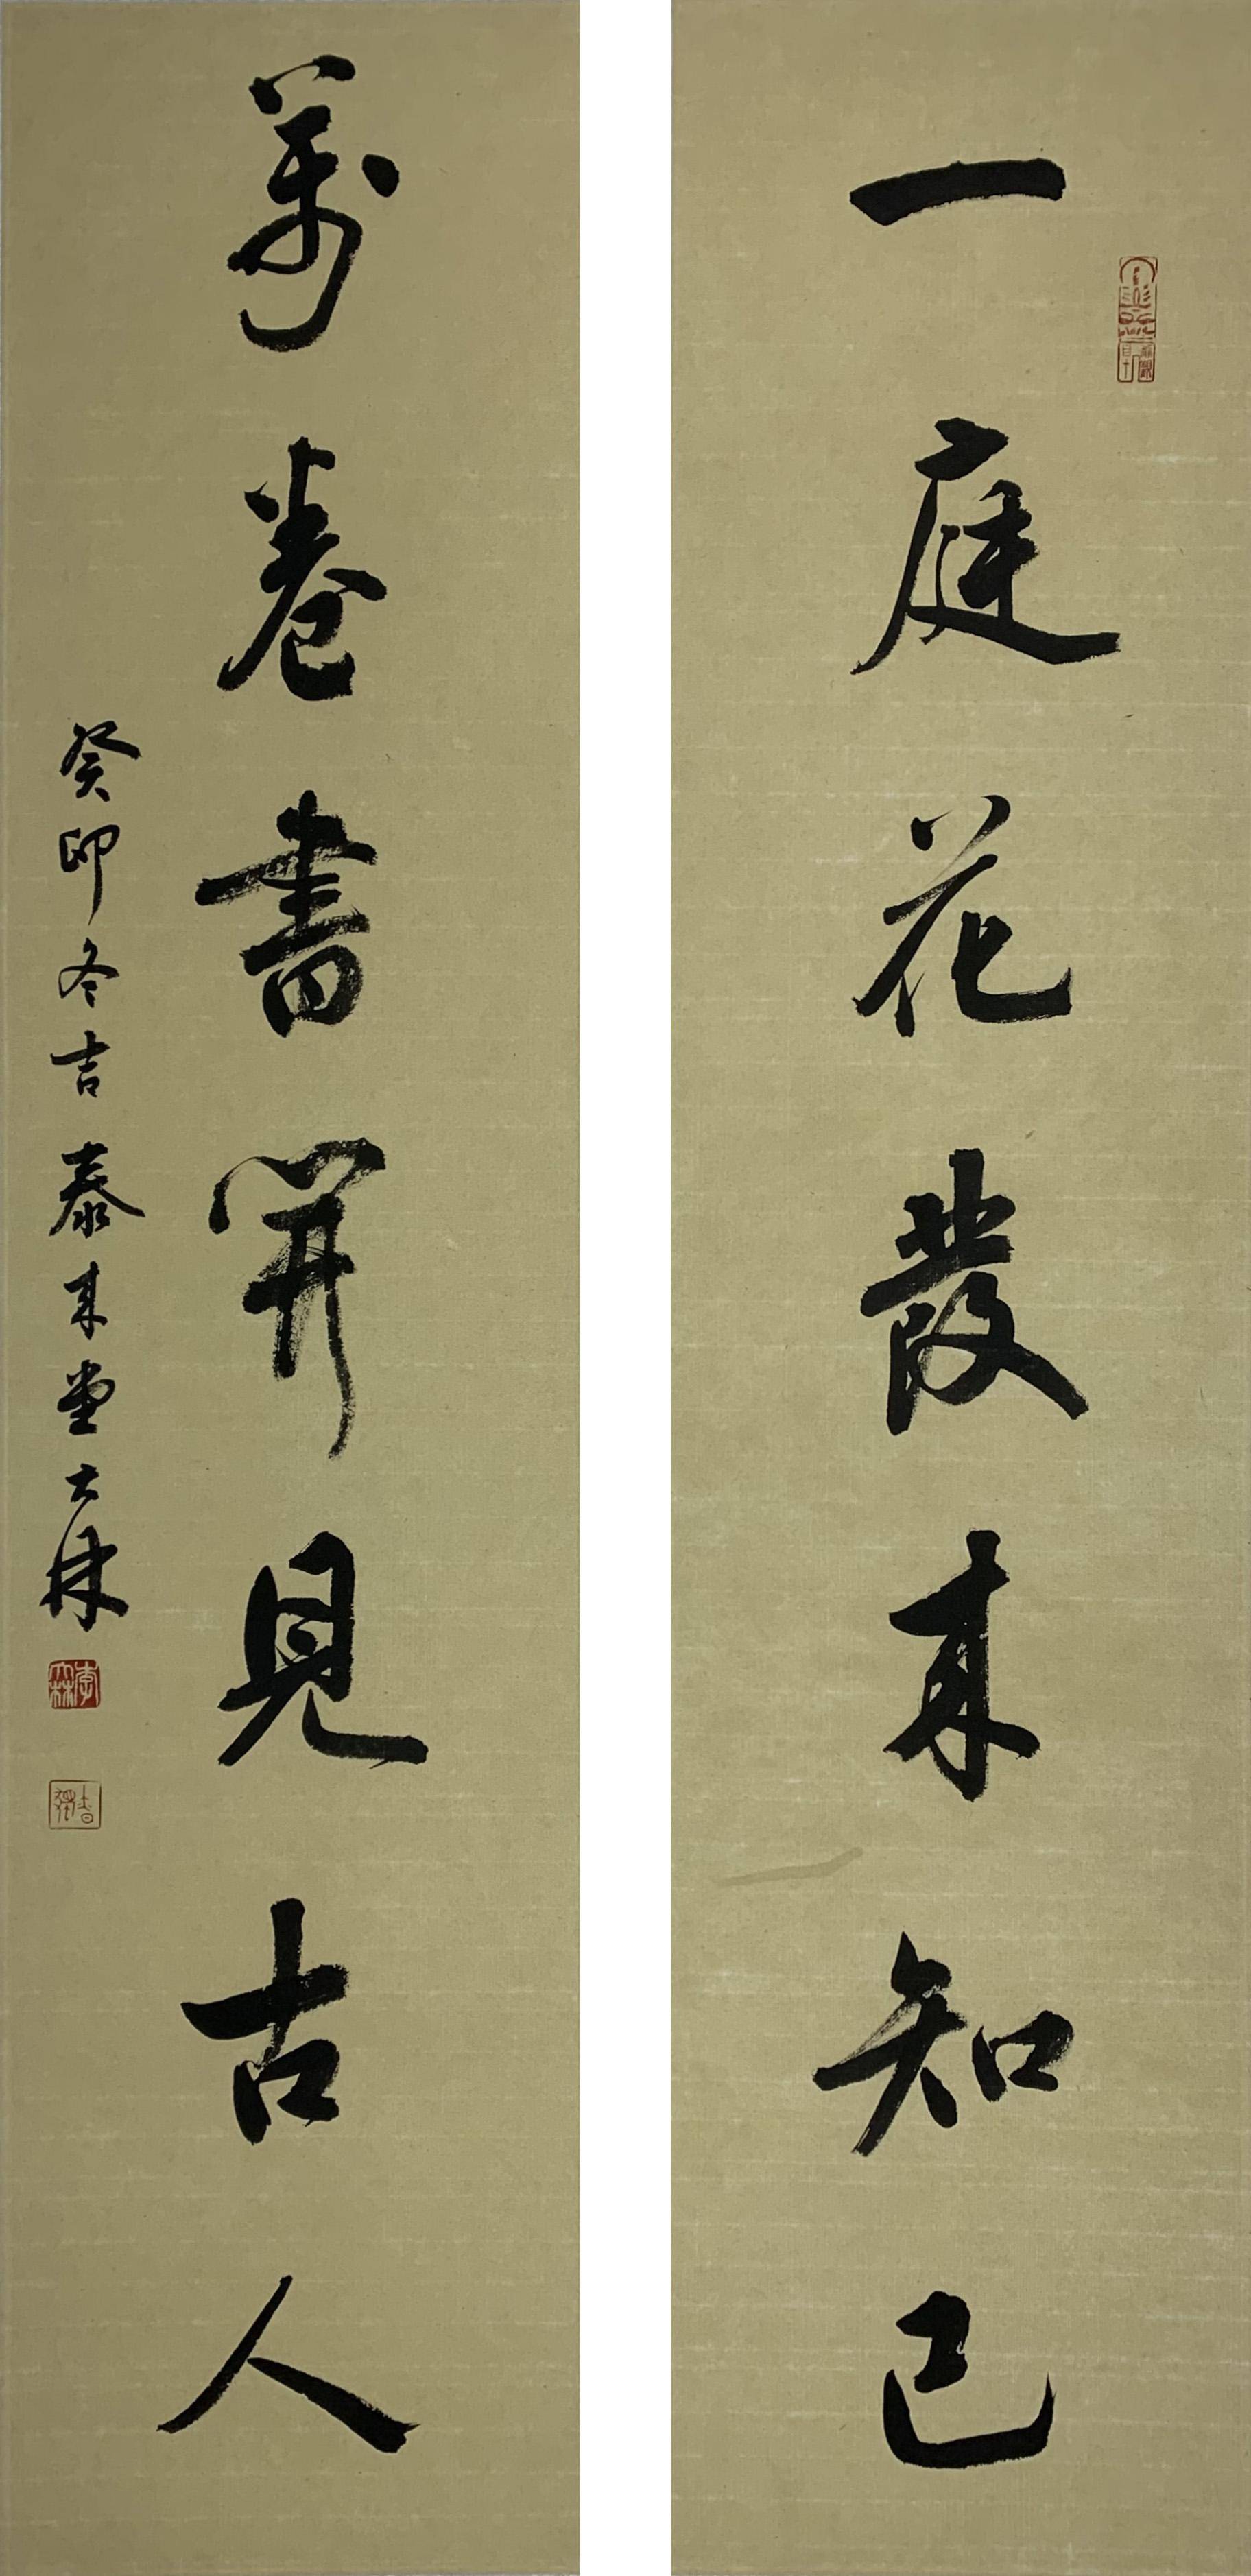 一庭花發来知己
萬卷書開見古人
癸卯冬吉泰来堂大林